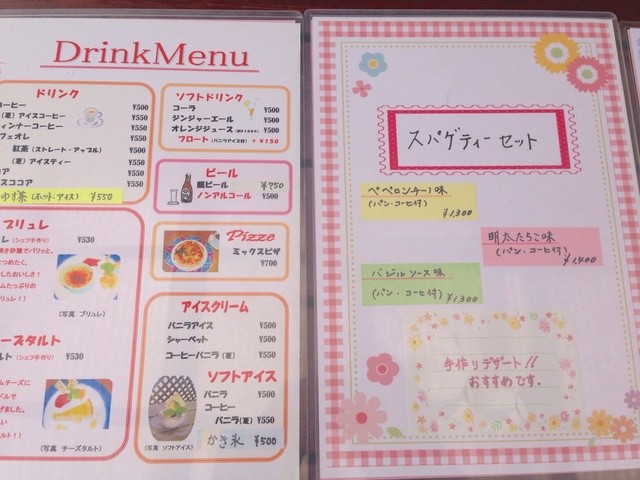 DrinkMenu
ドリンク
コーヒー ¥500
(夏)アイスコーヒー ¥500
¥500
フェオレ ¥550
紅茶(ストレート・アップル) ¥500
(夏)アイスティー ¥500
¥550
¥550
ゆず茶(ホット・アイス) ¥550
ソフトドリンク
コーラ ¥500
ジンジャーエール ¥500
オレンジジュース ¥500
フロート(バニラアイス付) +¥150
ビール
瓶ビール ¥750
ノンアルコール ¥500
Pizze
ミックスピザ
¥700
ブリュレ
(シェフ手作り) ¥530
パリッと、
つめたく、
したおいしさ!
ムたっぷりの
リュレ!
(写真 ブリュレ)
ーズタルト
ルト(シェフ手作り) ¥530
ムチーズに
ドルで
げました。
(写真 チーズタルト)
アイスクリーム
バニラアイス ¥500
シャーベット ¥500
コーヒーバニラ(夏) ¥550
ソフトアイス
バニラ ¥500
コーヒー ¥500
バニラ(夏) ¥550
(写真 ソフトアイス)
かき氷 ¥500
スパゲティーセット
ペペロンチーノ味
(パン・コーヒ付)
¥1,300
明太たらこ味
(パン・コーヒ付)
¥1,400
バジルソース味
(パン・コーヒ付)
¥1,300
手作りデザート!!
おすすめです。